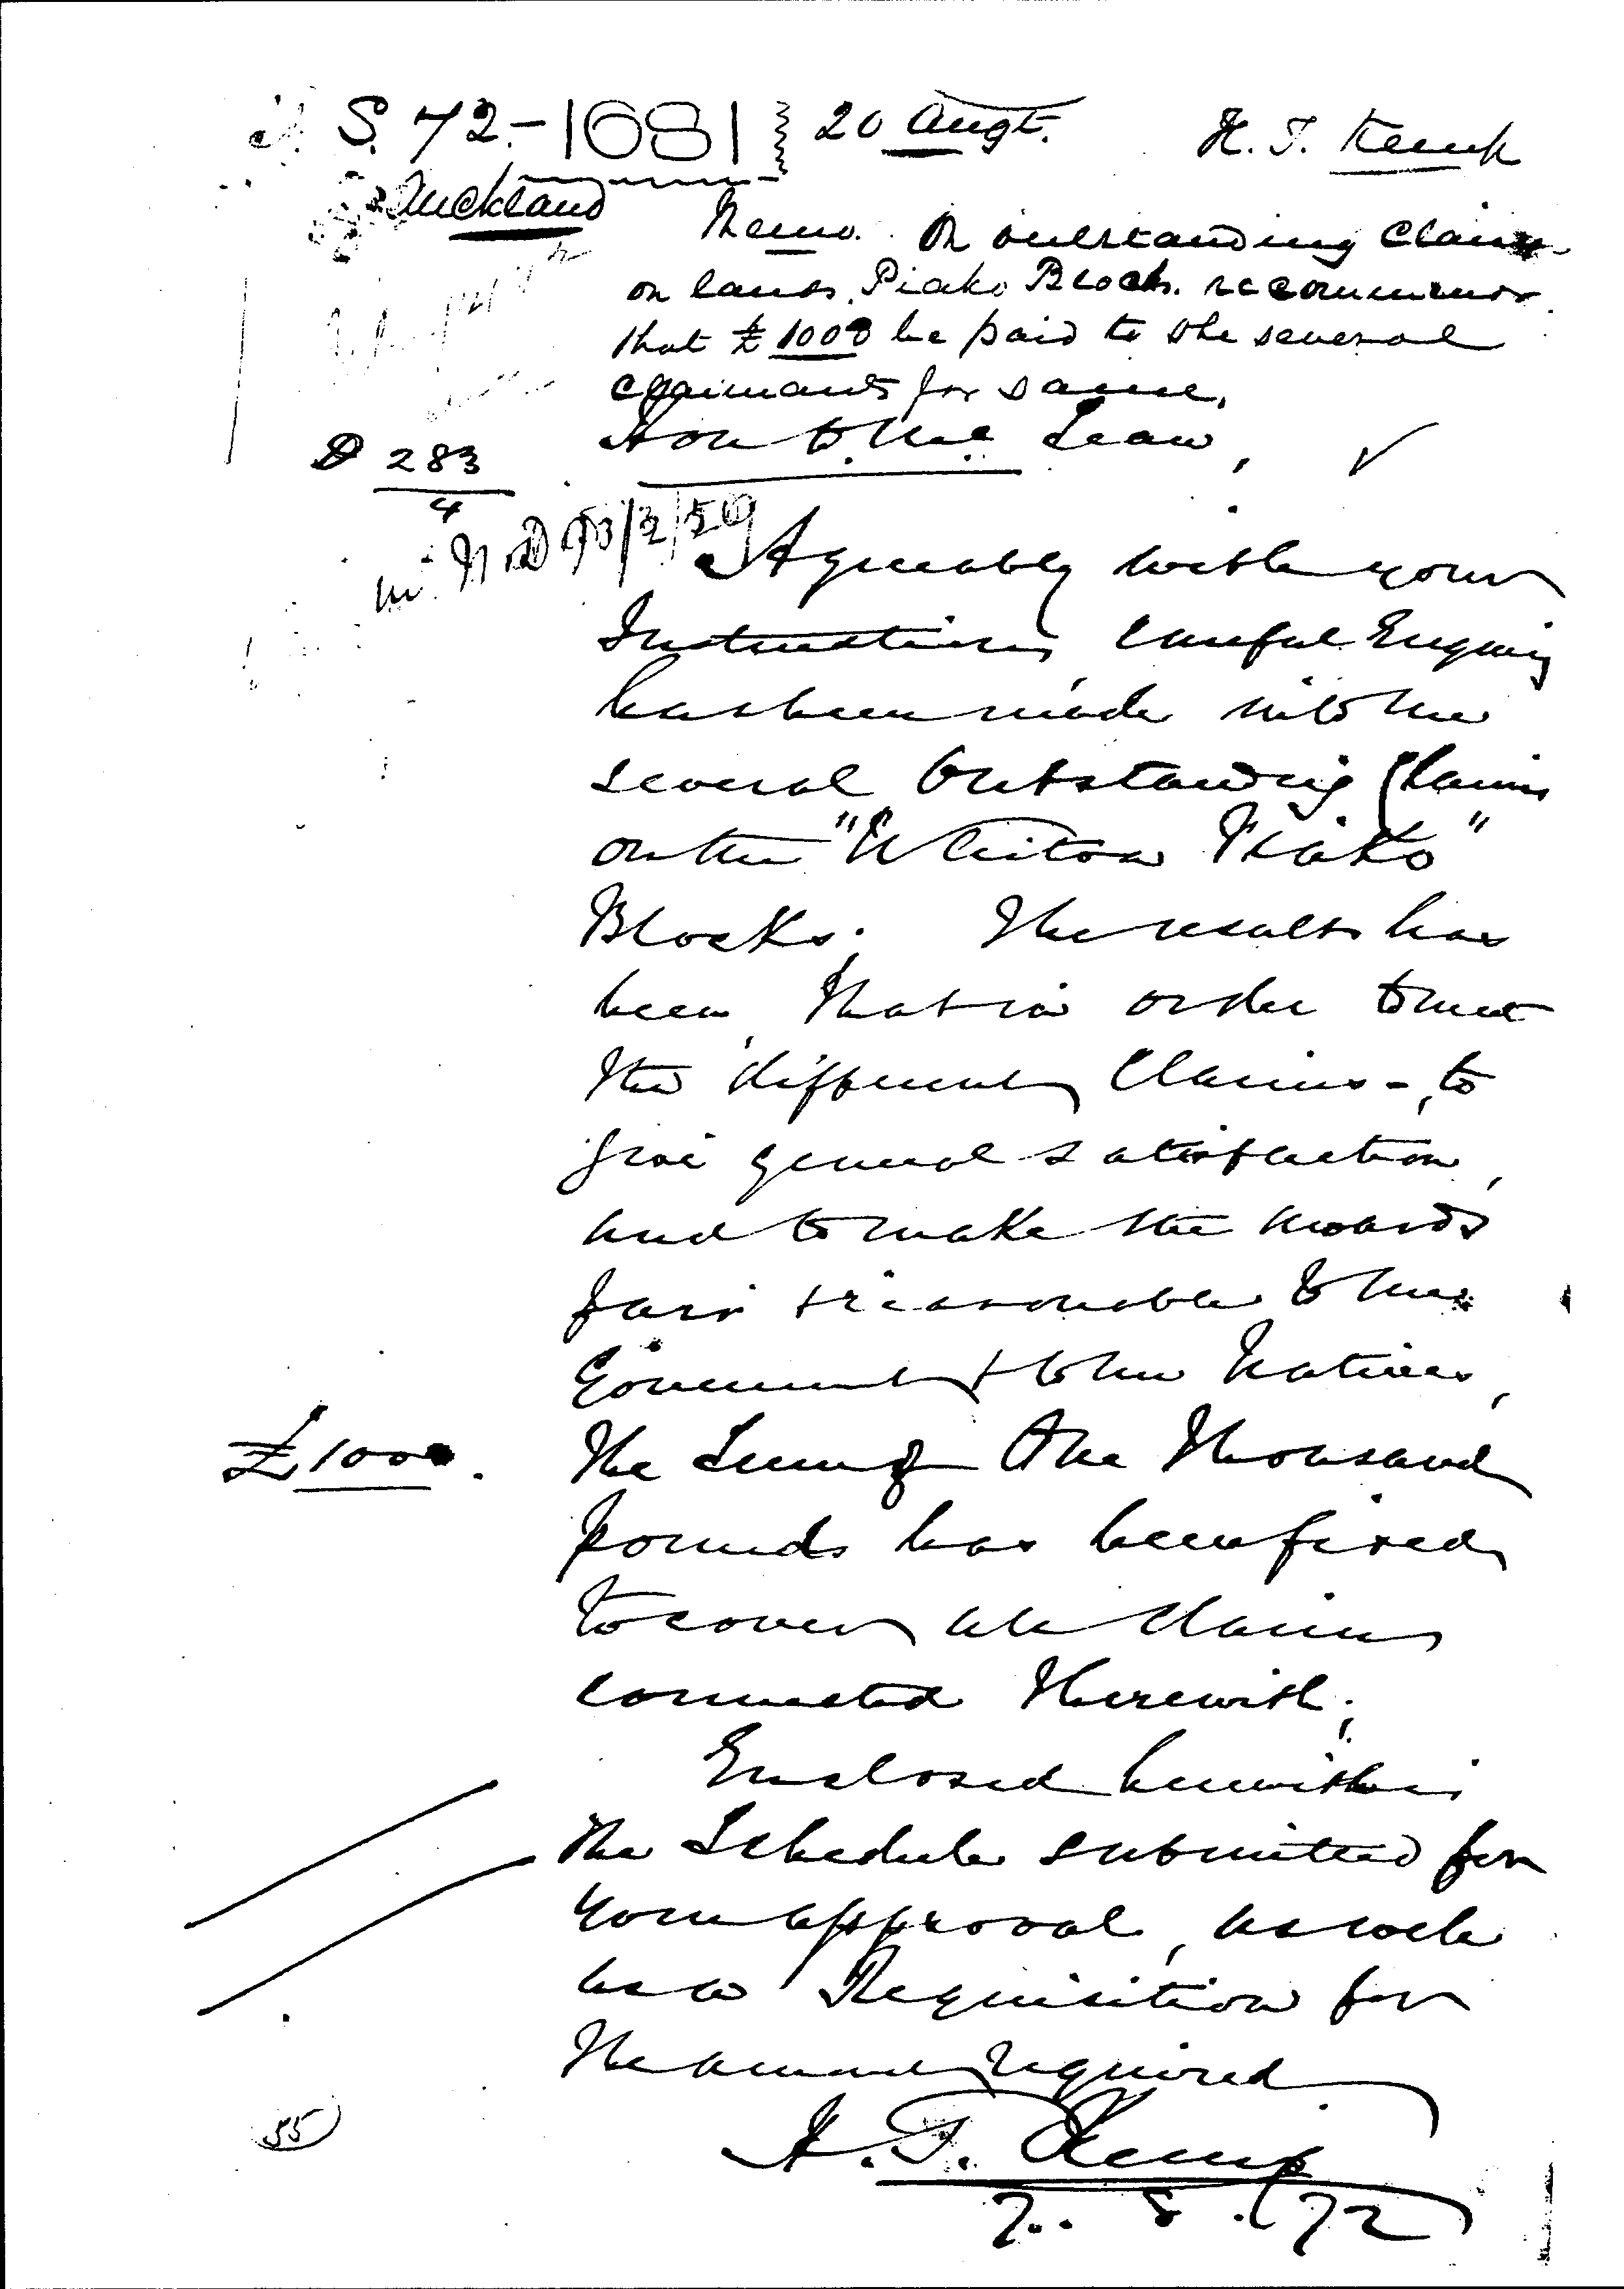 S. 72-1681 20 Augt. H. T. Kemp
Auckland
Memo. On outstanding claims
on lands, Piako Block. recommends
that £1000 be paid to the several
claimants for same.
Hon D. McLean,
D 283
4
N.O. 73/2/59
Agreeably with your
Instructions, careful Enquiry
has been made into the
several Outstanding Claims
on the "Waitoa Piako"
Blocks. The result has
been, that in order to meet
the different Claims -, to
give general satisfaction,
and to make the awards
fair & reasonable to the
Government & to the Natives,
£1000. The Sum of One Thousand
pounds has been fixed
to cover all Claims
connected therewith;
Enclosed herewith is
the Schedule submitted for
your approval, as well
as a Requisition for
the amount required
H. T. Kemp
7. 8. /72
55